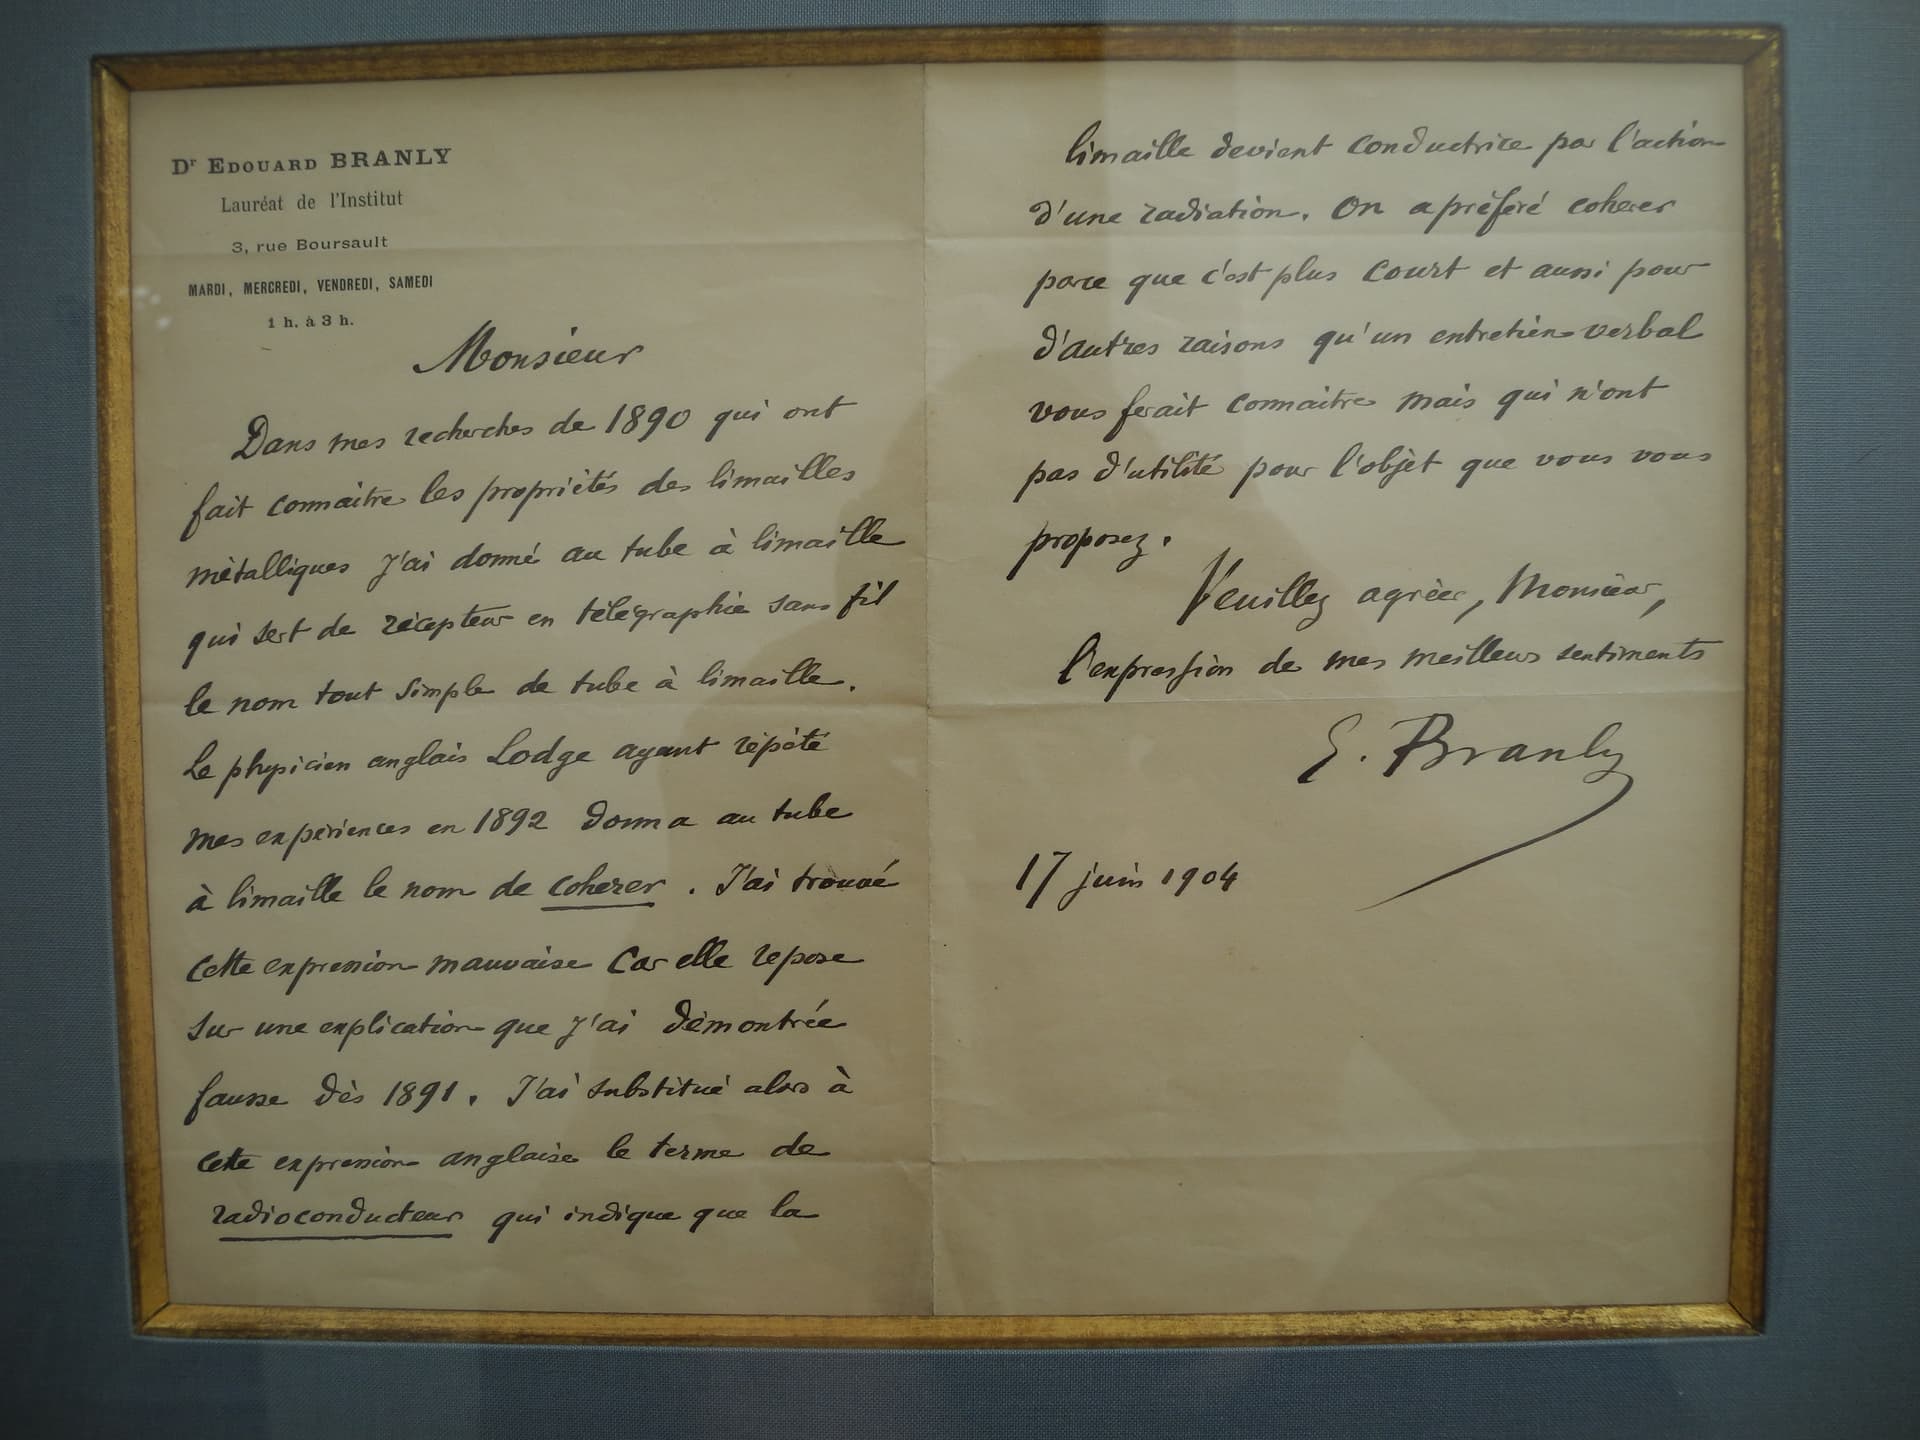 Dr EDOUARD BRANLY
Lauréat de l'Institut
3, rue Boursault
MARDI, MERCREDI, VENDREDI, SAMEDI
1 h. à 3 h.
Monsieur
Dans mes recherches de 1890 qui ont
fait connaître les propriétés des limailles
métalliques j'ai donné au tube à limaille
qui sert de récepteur en télégraphie sans fil
le nom tout simple de tube à limaille.
Le physicien anglais Lodge ayant répété
mes expériences en 1892 donna au tube
à limaille le nom de coherer. J'ai trouvé
cette expression mauvaise car elle repose
sur une explication que j'ai démontrée
fausse dès 1891. J'ai substitué alors à
cette expression anglaise le terme de
radioconducteur qui indique que la
limaille devient conductrice par l'action
d'une radiation. On a préféré coherer
parce que c'est plus court et aussi pour
d'autres raisons qu'un entretien verbal
vous ferait connaître mais qui n'ont
pas d'utilité pour l'objet que vous vous
proposez.
Veuillez agréer, Monsieur,
l'expression de mes meilleurs sentiments
E. Branly
17 juin 1904